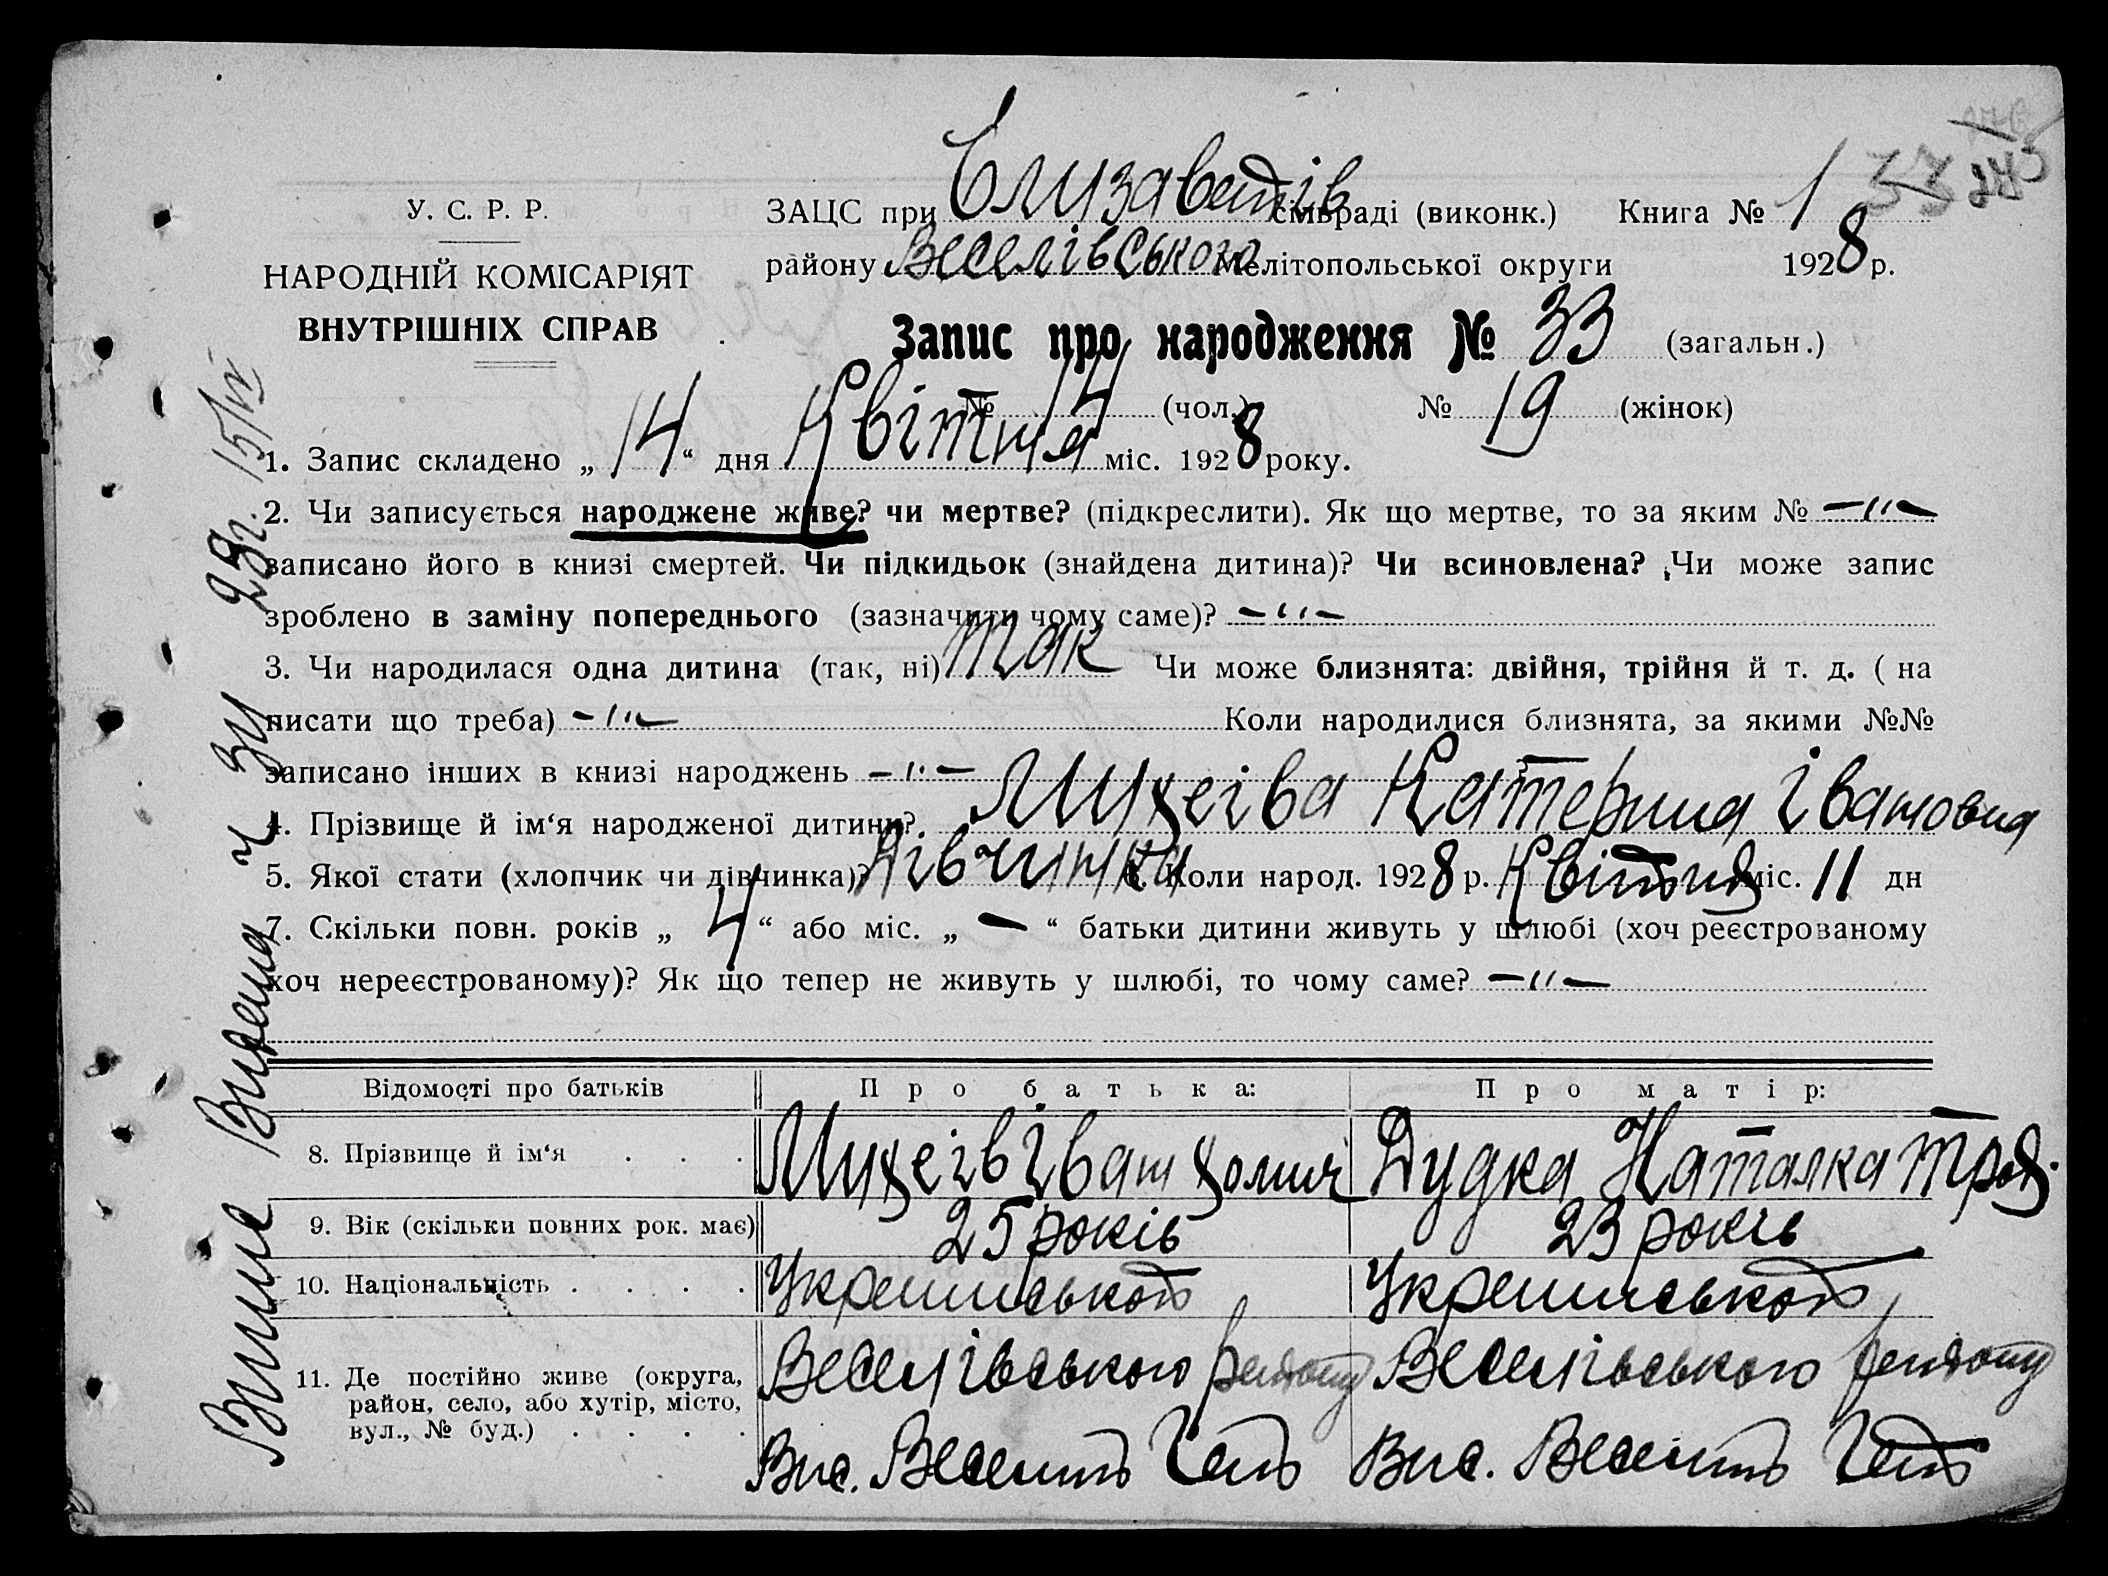 У. С. Р. Р.
НАРОДНІЙ КОМІСАРІЯТ
ВНУТРІШНІХ СПРАВ
ЗАЦС при Єлизаветів сільраді (виконк.) Книга № 1 33 245
району Веселівського Мелітопольської округи 1928 р.
Запис про народження № 33 (загальн.)
№ 14 (чол.) № 19 (жінок)
1. Запис складено „ 14 “ дня Квітня міс. 1928 року.
2. Чи записується народжене живе? чи мертве? (підкреслити). Як що мертве, то за яким № —"—
записано його в книзі смертей. Чи підкидьок (знайдена дитина)? Чи всиновлена? Чи може запис
зроблено в заміну попереднього (зазначити чому саме)? —"—
3. Чи народилася одна дитина (так, ні) так Чи може близнята: двійня, трійня й т. д. ( на
писати що треба) —"— Коли народилися близнята, за якими №№
записано інших в книзі народжень —"—
4. Прізвище й ім‘я народженої дитини? Катерина Івановна
5. Якої стати (хлопчик чи дівчинка)? Дівчинка Коли народ. 1928 р. Квітня міс. 11 дн
7. Скільки повн. років „ 4 “ або міс. „ — “ батьки дитини живуть у шлюбі (хоч реєстрованому
хоч нереєстрованому)? Як що тепер не живуть у шлюбі, то чому саме? —"—
Відомості про батьків Про батька: Про матір:
8. Прізвище й ім‘я . . . Іван Дудка Наталка
9. Вік (скільки повних рок. має) 25 років 23 років
10. Національність . . . . Українською Українською
11. Де постійно живе (округа, район, село, або хутір, місто, вул., № буд.) . . . . Веселівського району Веселівського району
Вис.
Вис.